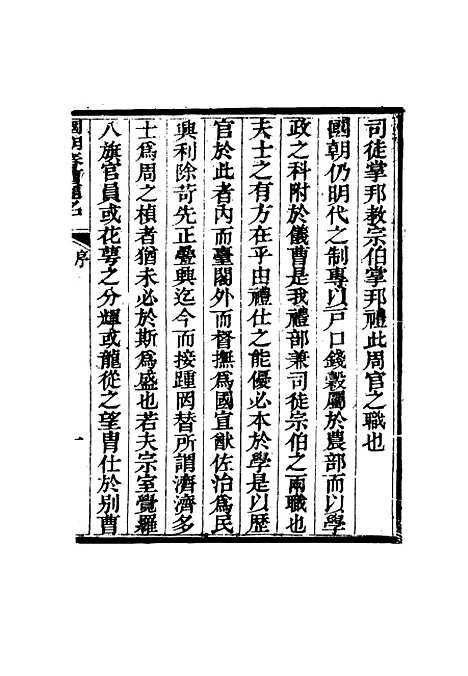 司徒掌邦教宗伯掌邦禮此周官之職也
國朝仍明代之制專以戸口錢穀屬於農部而以學
政之科附於儀曹是我禮部兼司徒宗伯之兩職也
夫士之有方在乎由禮仕之能優必本於學是以歷
官於此者內而臺閣外而督撫爲國宣猷佐治爲民
興利除苛先正疊興迄今而接踵罔替所謂濟濟多
士爲周之楨者猶未必於斯爲盛也若夫宗室覺羅
八旗官員或花萼之分輝或龍從之望胄仕於別曹
國朝春曹題名
序
一